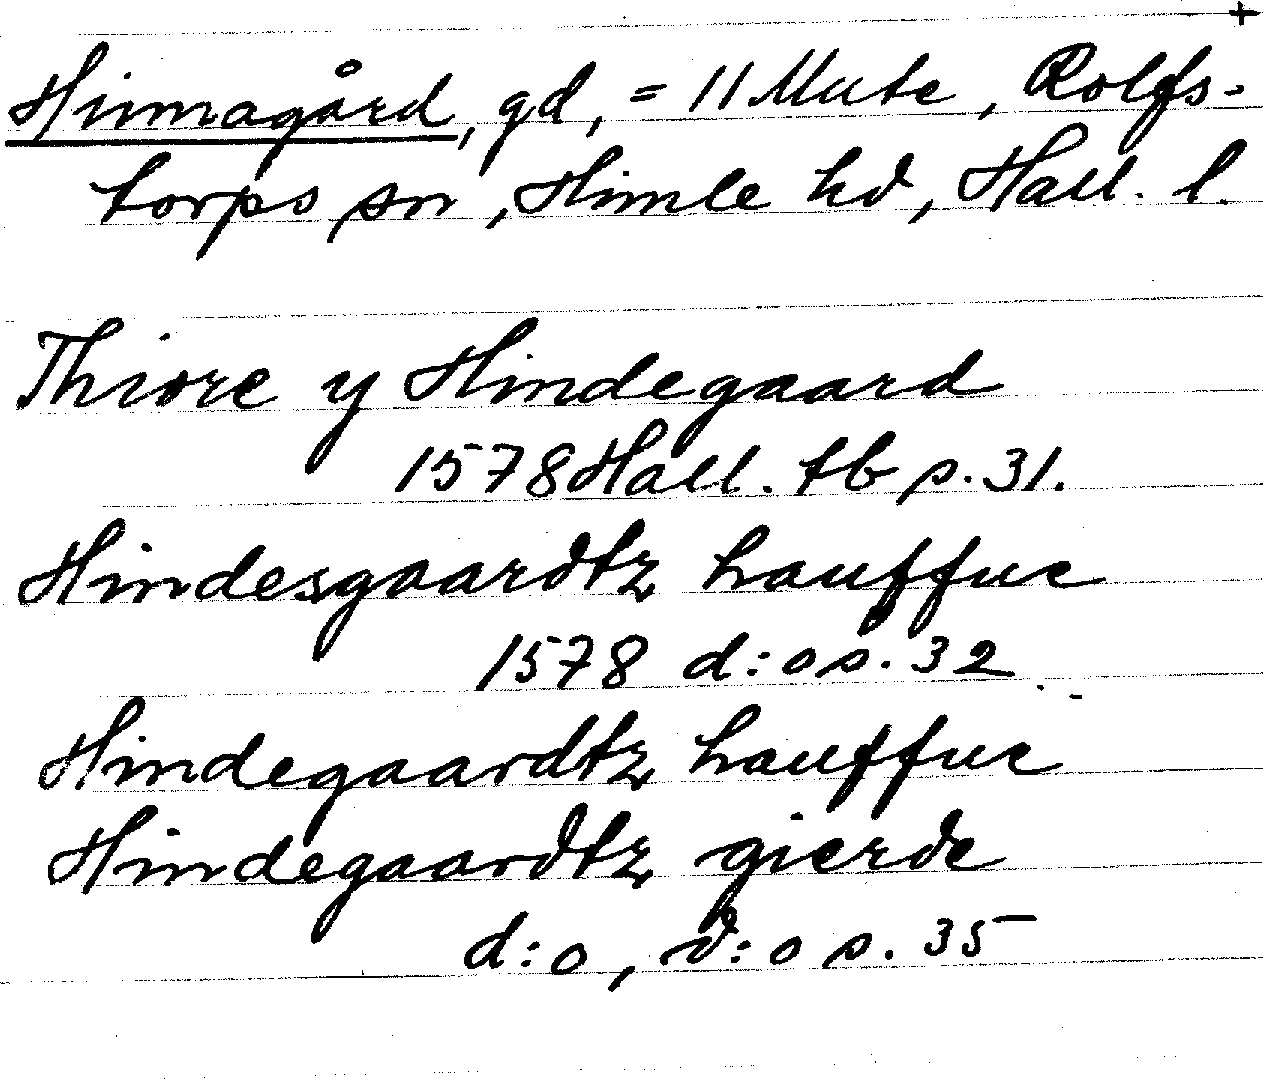 +
Hinnagård, gd, = 11 Mute, Rolfs-
torps sn, Himle hd, Hall. l.
Thiore y Hindegaard
1578 Hall. tb s. 31.
Hindesgaardtz hauffue
1578 d:o s. 32
Hindegaardtz hauffue
Hindegaardtz gierde
d:o, d:o s. 35